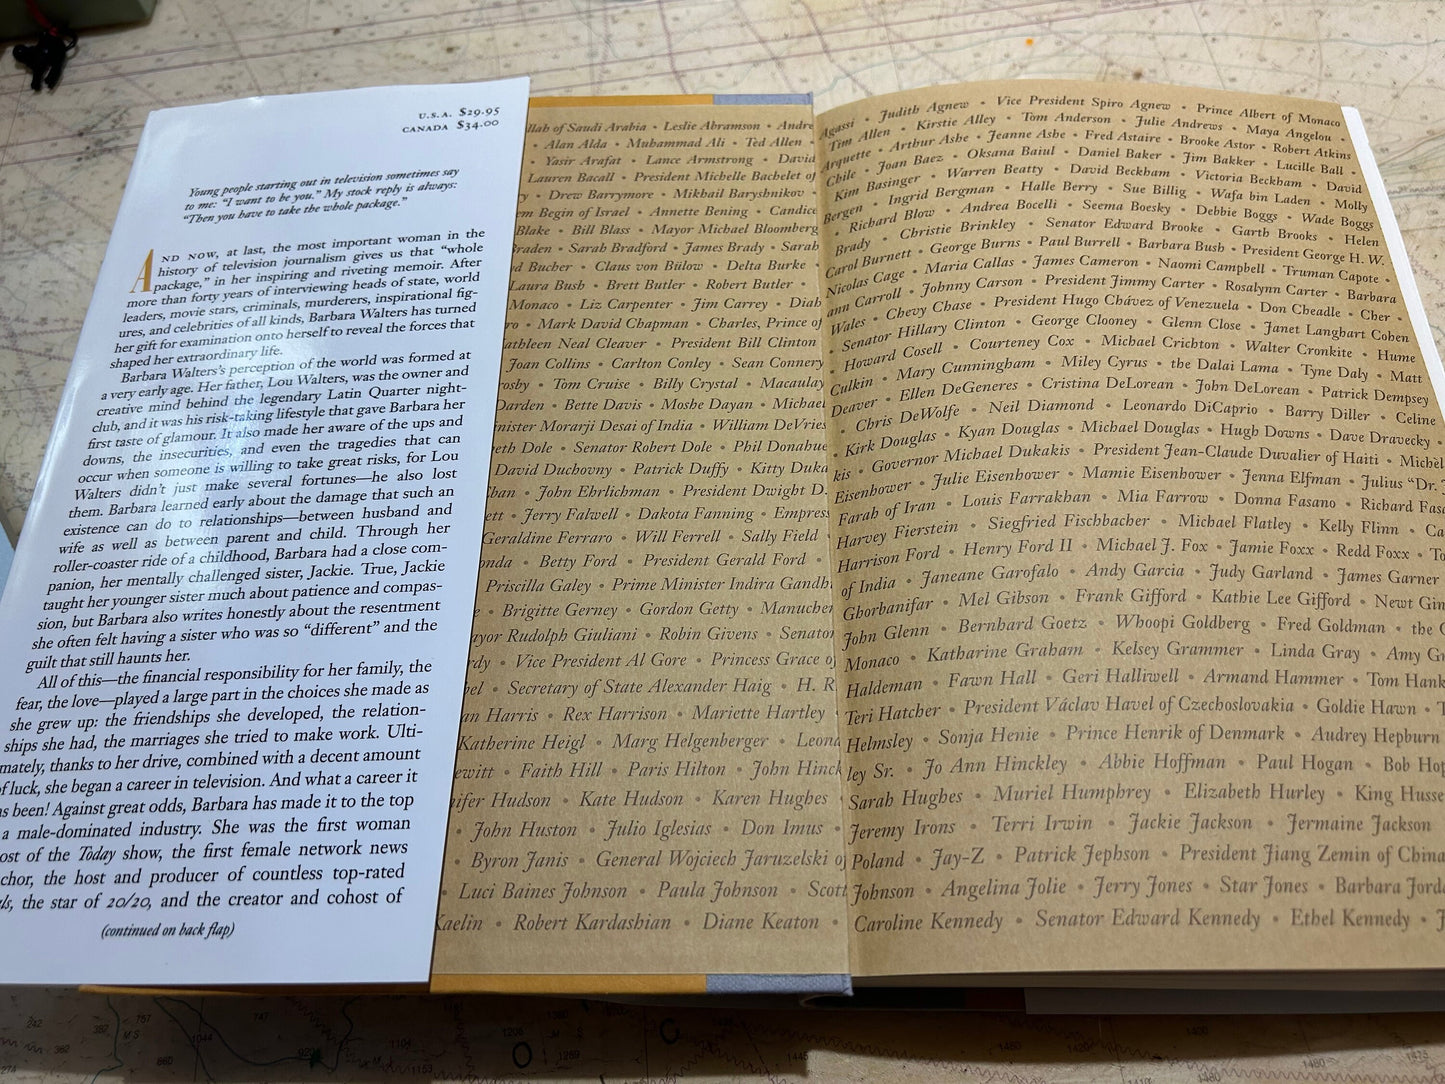 U.S.A. $29.95
CANADA $34.00
Young people starting out in television sometimes say
to me: “I want to be you.” My stock reply is always:
“Then you have to take the whole package.”
AND NOW, at last, the most important woman in the
history of television journalism gives us that “whole
package,” in her inspiring and riveting memoir. After
more than forty years of interviewing heads of state, world
leaders, movie stars, criminals, murderers, inspirational fig-
ures, and celebrities of all kinds, Barbara Walters has turned
her gift for examination onto herself to reveal the forces that
shaped her extraordinary life.
Barbara Walters’s perception of the world was formed at
a very early age. Her father, Lou Walters, was the owner and
creative mind behind the legendary Latin Quarter night-
club, and it was his risk-taking lifestyle that gave Barbara her
first taste of glamour. It also made her aware of the ups and
downs, the insecurities, and even the tragedies that can
occur when someone is willing to take great risks, for Lou
Walters didn’t just make several fortunes—he also lost
them. Barbara learned early about the damage that such an
existence can do to relationships—between husband and
wife as well as between parent and child. Through her
roller-coaster ride of a childhood, Barbara had a close com-
panion, her mentally challenged sister, Jackie. True, Jackie
taught her younger sister much about patience and compas-
sion, but Barbara also writes honestly about the resentment
she often felt having a sister who was so “different” and the
guilt that still haunts her.
All of this—the financial responsibility for her family, the
fear, the love—played a large part in the choices she made as
she grew up: the friendships she developed, the relation-
ships she had, the marriages she tried to make work. Ulti-
mately, thanks to her drive, combined with a decent amount
of luck, she began a career in television. And what a career it
as been! Against great odds, Barbara has made it to the top
a male-dominated industry. She was the first woman
ost of the Today show, the first female network news
chor, the host and producer of countless top-rated
ls, the star of 20/20, and the creator and cohost of
(continued on back flap)
llah of Saudi Arabia • Leslie Abramson • Andre
• Alan Alda • Muhammad Ali • Ted Allen •
• Yasir Arafat • Lance Armstrong • David
Lauren Bacall • President Michelle Bachelet of
y • Drew Barrymore • Mikhail Baryshnikov •
em Begin of Israel • Annette Bening • Candice
Blake • Bill Blass • Mayor Michael Bloomberg
Braden • Sarah Bradford • James Brady • Sarah
d Bucher • Claus von Bülow • Delta Burke •
Laura Bush • Brett Butler • Robert Butler •
Monaco • Liz Carpenter • Jim Carrey • Diah
ro • Mark David Chapman • Charles, Prince of
athleen Neal Cleaver • President Bill Clinton
Joan Collins • Carlton Conley • Sean Connery
rosby • Tom Cruise • Billy Crystal • Macaulay
Darden • Bette Davis • Moshe Dayan • Michael
inister Morarji Desai of India • William DeVries
eth Dole • Senator Robert Dole • Phil Donahue
David Duchovny • Patrick Duffy • Kitty Duka
han • John Ehrlichman • President Dwight D.
ett • Jerry Falwell • Dakota Fanning • Empress
Geraldine Ferraro • Will Ferrell • Sally Field •
onda • Betty Ford • President Gerald Ford •
Priscilla Galey • Prime Minister Indira Gandhi
e • Brigitte Gerney • Gordon Getty • Manucher
ayor Rudolph Giuliani • Robin Givens • Senator
rdy • Vice President Al Gore • Princess Grace of
bel • Secretary of State Alexander Haig • H. R.
an Harris • Rex Harrison • Mariette Hartley •
Katherine Heigl • Marg Helgenberger • Leona
ewitt • Faith Hill • Paris Hilton • John Hinck
nifer Hudson • Kate Hudson • Karen Hughes •
• John Huston • Julio Iglesias • Don Imus •
• Byron Janis • General Wojciech Jaruzelski of
• Luci Baines Johnson • Paula Johnson • Scott
Kaelin • Robert Kardashian • Diane Keaton •
Agassi • Judith Agnew • Vice President Spiro Agnew • Prince Albert of Monaco
Tim Allen • Kirstie Alley • Tom Anderson • Julie Andrews • Maya Angelou •
Arquette • Arthur Ashe • Jeanne Ashe • Fred Astaire • Brooke Astor • Robert Atkins
Chile • Joan Baez • Oksana Baiul • Daniel Baker • Jim Bakker • Lucille Ball •
Kim Basinger • Warren Beatty • David Beckham • Victoria Beckham • David
Bergen • Ingrid Bergman • Halle Berry • Sue Billig • Wafa bin Laden • Molly
• Richard Blow • Andrea Bocelli • Seema Boesky • Debbie Boggs • Wade Boggs
Brady • Christie Brinkley • Senator Edward Brooke • Garth Brooks • Helen
Carol Burnett • George Burns • Paul Burrell • Barbara Bush • President George H. W.
Nicolas Cage • Maria Callas • James Cameron • Naomi Campbell • Truman Capote •
ann Carroll • Johnny Carson • President Jimmy Carter • Rosalynn Carter • Barbara
Wales • Chevy Chase • President Hugo Chávez of Venezuela • Don Cheadle • Cher •
• Senator Hillary Clinton • George Clooney • Glenn Close • Janet Langhart Cohen
• Howard Cosell • Courteney Cox • Michael Crichton • Walter Cronkite • Hume
Culkin • Mary Cunningham • Miley Cyrus • the Dalai Lama • Tyne Daly • Matt
Deaver • Ellen DeGeneres • Cristina DeLorean • John DeLorean • Patrick Dempsey
• Chris DeWolfe • Neil Diamond • Leonardo DiCaprio • Barry Diller • Celine
• Kirk Douglas • Kyan Douglas • Michael Douglas • Hugh Downs • Dave Dravecky •
kis • Governor Michael Dukakis • President Jean-Claude Duvalier of Haiti • Michel
Eisenhower • Julie Eisenhower • Mamie Eisenhower • Jenna Elfman • Julius “Dr. J
Farah of Iran • Louis Farrakhan • Mia Farrow • Donna Fasano • Richard Fasa
Harvey Fierstein • Siegfried Fischbacher • Michael Flatley • Kelly Flinn • Ca
Harrison Ford • Henry Ford II • Michael J. Fox • Jamie Foxx • Redd Foxx • To
of India • Janeane Garofalo • Andy Garcia • Judy Garland • James Garner
Ghorbanifar • Mel Gibson • Frank Gifford • Kathie Lee Gifford • Newt Gin
John Glenn • Bernhard Goetz • Whoopi Goldberg • Fred Goldman • the G
Monaco • Katharine Graham • Kelsey Grammer • Linda Gray • Amy Gr
Haldeman • Fawn Hall • Geri Halliwell • Armand Hammer • Tom Hank
Teri Hatcher • President Václav Havel of Czechoslovakia • Goldie Hawn • T
Helmsley • Sonja Henie • Prince Henrik of Denmark • Audrey Hepburn
ley Sr. • Jo Ann Hinckley • Abbie Hoffman • Paul Hogan • Bob Hop
Sarah Hughes • Muriel Humphrey • Elizabeth Hurley • King Husse
Jeremy Irons • Terri Irwin • Jackie Jackson • Jermaine Jackson
Poland • Jay-Z • Patrick Jephson • President Jiang Zemin of China
Johnson • Angelina Jolie • Jerry Jones • Star Jones • Barbara Jorda
Caroline Kennedy • Senator Edward Kennedy • Ethel Kennedy • J